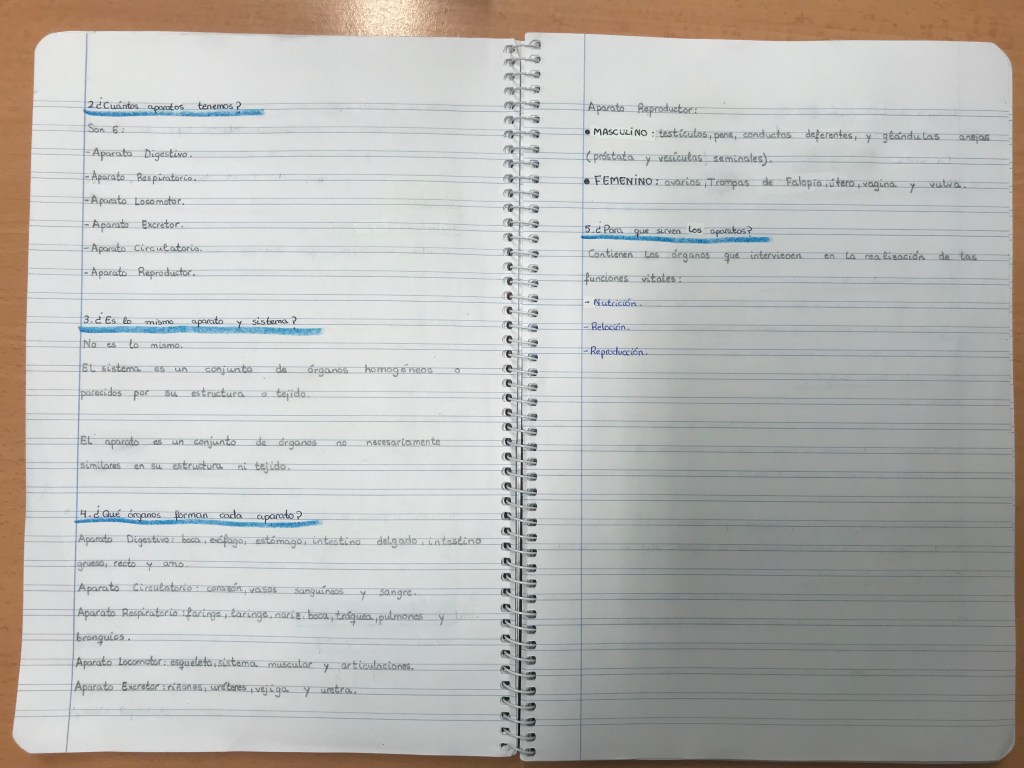 2.¿Cuántos aparatos tenemos?
Son 6:
-Aparato Digestivo.
-Aparato Respiratorio.
-Aparato Locomotor.
-Aparato Excretor.
-Aparato Circulatorio.
-Aparato Reproductor.
3.¿Es lo mismo aparato y sistema?
No es lo mismo.
El sistema es un conjunto de órganos homogéneos o
parecidos por su estructura o tejido.
El aparato es un conjunto de órganos no necesariamente
similares en su estructura ni tejido.
4.¿Qué órganos forman cada aparato?
Aparato Digestivo: boca, esófago, estómago, intestino delgado, intestino
grueso, recto y ano.
Aparato Circulatorio: corazón, vasos sanguíneos y sangre.
Aparato Respiratorio: faringe, laringe, nariz, boca, tráquea, pulmones y
bronquios.
Aparato Locomotor: esqueleto, sistema muscular y articulaciones.
Aparato Excretor: riñones, uréteres, vejiga y uretra.
Aparato Reproductor:
• MASCULINO: testículos, pene, conductos deferentes, y glándulas anejas
(próstata y vesículas seminales).
• FEMENINO: ovarios, Trompas de Falopio, útero, vagina y vulva.
5.¿Para que sirven los aparatos?
Contienen los órganos que intervienen en la realización de las
funciones vitales:
- Nutrición.
- Relación.
- Reproducción.